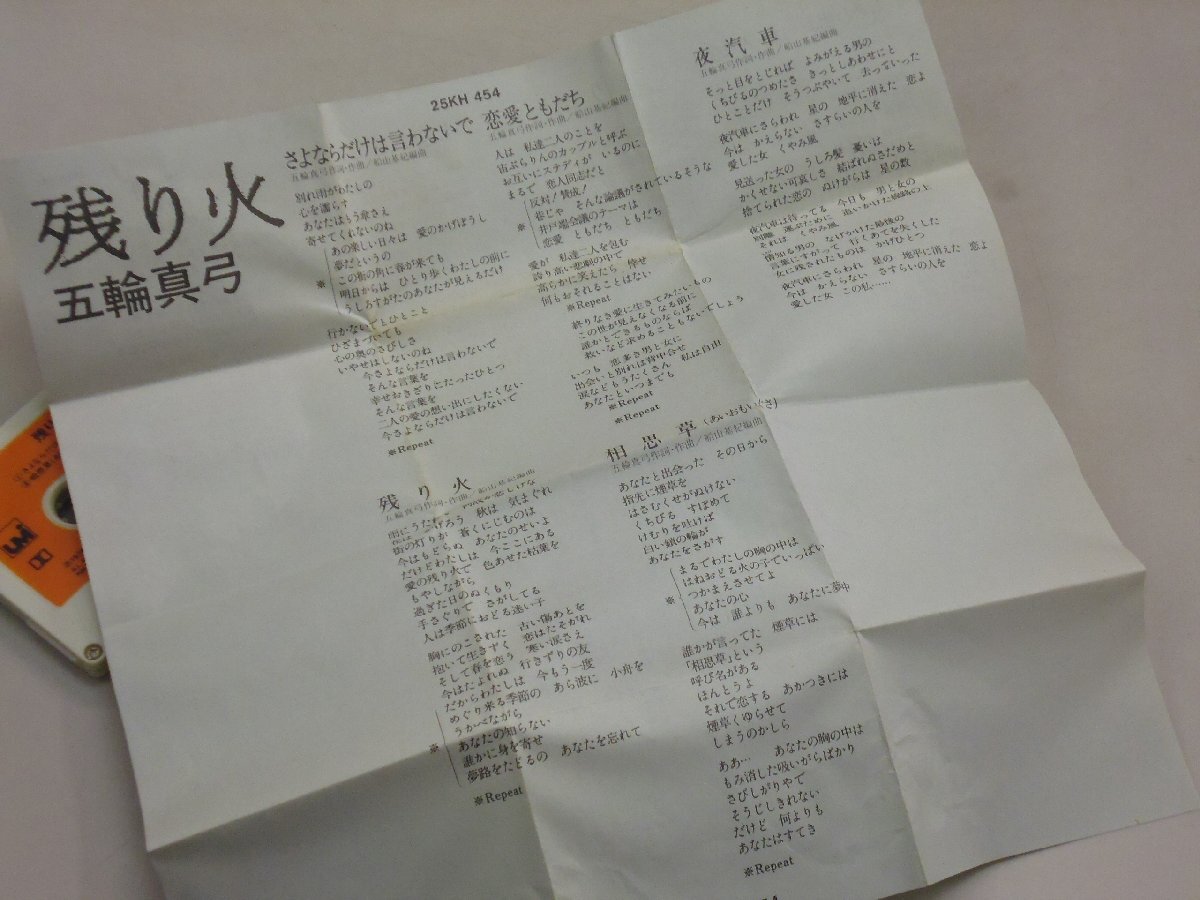 25KH 454
残り火
五輪真弓
さよならだけは言わないで
五輪真弓作詞・作曲／船山基紀編曲
別れ雨がわたしの
心を濡らす
あなたはもう傘さえ
寄せてくれないのね
あの楽しい日々は 愛のかげぼうし
夢だというの
※ この街の角に春が来ても
明日からは ひとり歩くわたしの前に
うしろすがたのあなたが見えるだけ
行かないでとひとこと
ひざまづいても
心の奥のさびしさ
いやせはしないのね
今さよならだけは言わないで
そんな言葉を
幸せおきざりにたったひとつ
そんな言葉を
二人の愛の想い出にしたくない
今さよならだけは言わないで
※Repeat
恋愛ともだち
五輪真弓作詞・作曲／船山基紀編曲
人は 私達二人のことを
宙ぶらりんのカップルと呼ぶ
お互いにステディが いるのに
まるで 恋人同志だと
反対！賛成！
巷じゃ そんな論議がされているそうな
※ 井戸端会議のテーマは
恋愛 ともだち ともだち
愛が 私達二人を包む
誇り高い悲劇の中で
高らかに笑えたら 倖せ
何もおそれることはない
※Repeat
終りなき愛に生きてみたいもの
この世が見えなくなる前に
誰かとできるものならば
救いなど求めることもないでしょう
いつも 恋多き男と女に
出会いと別れは背中合せ
涙などもうたくさん 私は自由
あなたといつまでも
※Repeat
※Repeat
夜汽車
五輪真弓作詞・作曲／船山基紀編曲
そっと目をとじれば よみがえる男の
くちびるのつめたさ きっとしあわせにと
ひとことだけ そうつぶやいて 去っていった
夜汽車にさらわれ 星の 地平に消えた 恋よ
今は かえらない さすらいの人を
愛した女 くやみ風
見送った女の うしろ髪 憂いは
かくせない可哀しさ 結ばれぬさだめと
捨てられた恋の ぬけがらは 星の数
夜汽車は待ってる 今日も 男と女の
別離 運ぶために 追いかけた線路の上
それは くやみ風
情知る男の なげかけた最後の
言葉にすがって 行くあてを失くした
女に残されたものは かげひとつ
夜汽車にさらわれ 星の 地平に消えた 恋よ
今は かえらない さすらいの人を
愛した女 この私……
残り火
五輪真弓作詞・作曲／船山基紀編曲
秋は 気まぐれ
街の灯りが 蒼くにじむのは
今はもどらぬ あなたのせいよ
だけどわたしは 今ここにある
愛の残り火で 色あせた枯葉を
もやしながら
過ぎた日のぬくもり
手さぐりで さがしてる
人は季節におどる迷い子
胸にのこされた 古い傷あとを
抱いて生きずく 恋はたそがれ
そして春を恋う 寒い涙さえ
今はたよれぬ 行きずりの友
だからわたしは 今もう一度
めぐり来る季節の あら波に 小舟を
うかべながら
※ あなたの知らない
誰かに身を寄せ
夢路をたどるの あなたを忘れて
※Repeat
相思草(あいおもいぐさ)
五輪真弓作詞・作曲／船山基紀編曲
あなたと出会った その日から
指先に煙草を
はさむくせがぬけない
くちびる すぼめて
けむりを吐けば
白い鎖の輪が
あなたをさがす
まるでわたしの胸の中は
はねおどる火の子でいっぱい
※ つかまえさせてよ
あなたの心
今は 誰よりも あなたに夢中
誰かが言ってた 煙草には
「相思草」という
呼び名がある
ほんとうよ
それで恋する あかつきには
煙草くゆらせて
しまうのかしら
ああ… あなたの胸の中は
もみ消した吸いがらばかり
さびしがりやで
そうじしきれない
だけど 何よりも
あなたはすてき
※Repeat